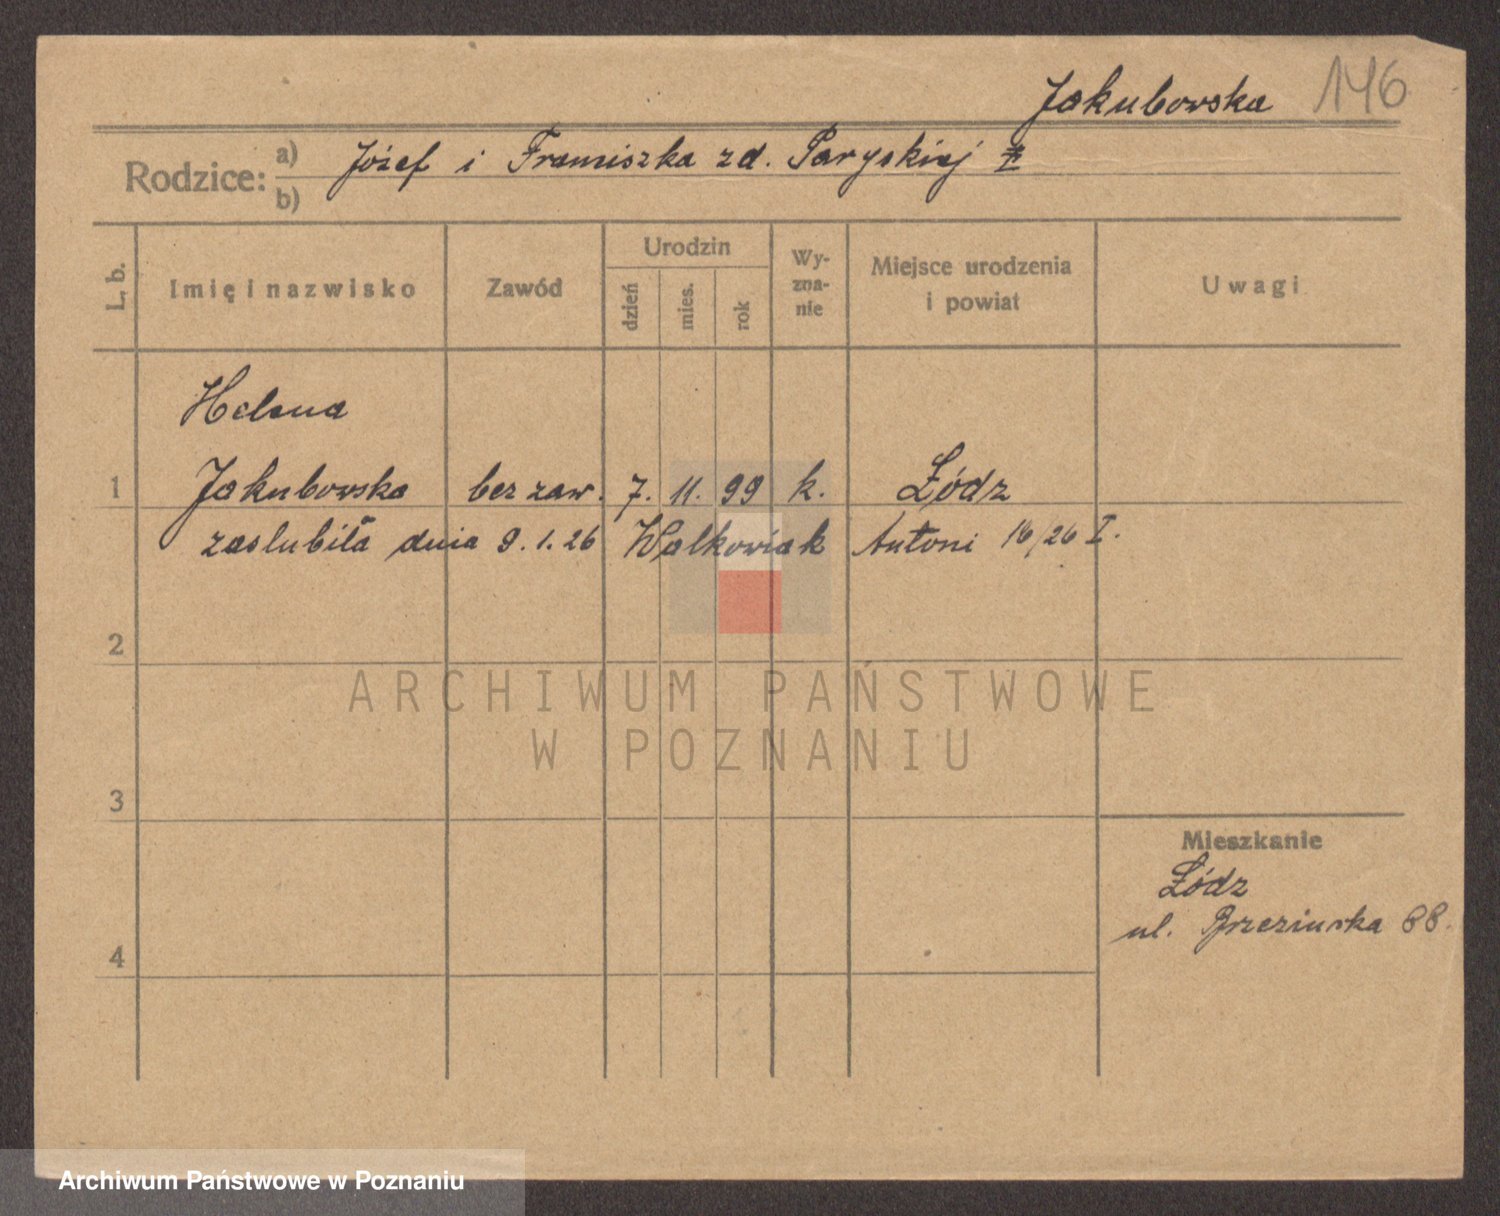 Jakubowska 146
Rodzice: a) Józef i Franciszka zd. Paryskiej
b)
L. b. Imię i nazwisko Zawód Urodzin dzień mies. rok Wyznanie Miejsce urodzenia i powiat Uwagi
Helena
1 Jakubowska bez zaw. 7. 11. 99 k. Łódz
zaslubiła dnia 9.1.26 Walkowiak Antoni 16/26 I.
2
ARCHIWUM PAŃSTWOWE
W POZNANIU
3
Mieszkanie
Łódz
ul. Brzezinska 88.
4
Archiwum Państwowe w Poznaniu